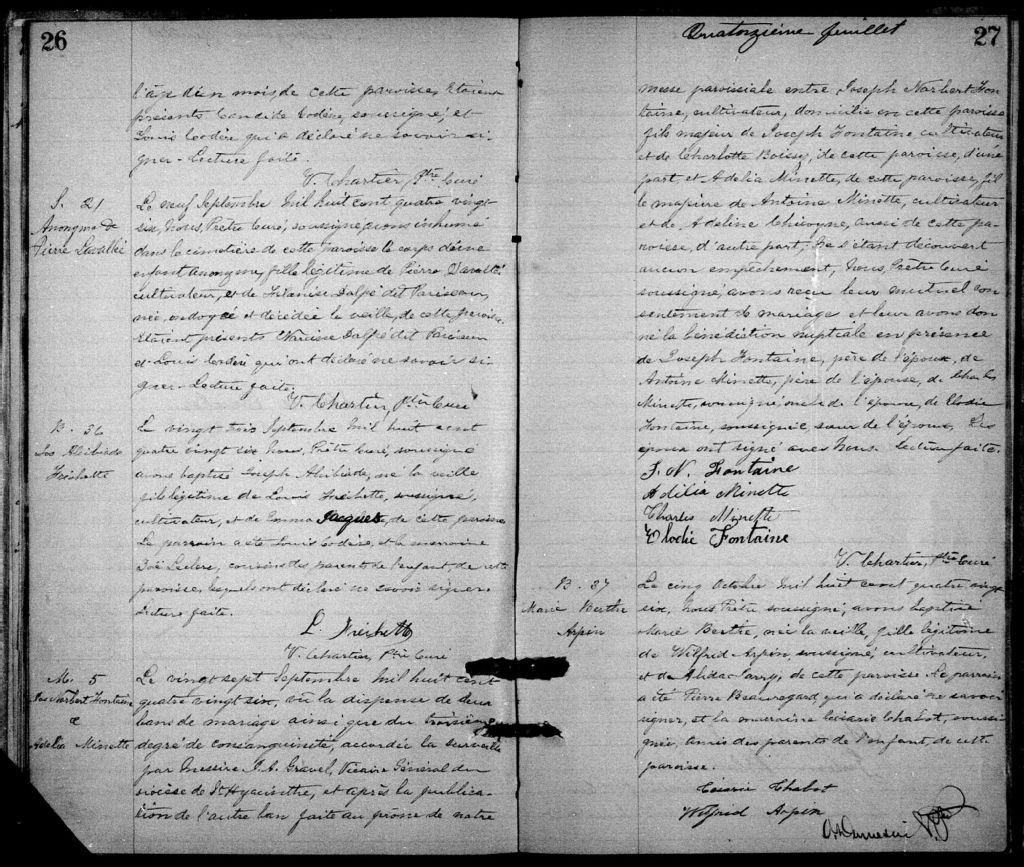 26
l'âge d'un mois, de cette paroisse. Étaient
présents Candide Codère, soussigné, et
Louis Codère qui a déclaré ne savoir si-
gner. Lecture faite.
V. Chartier, Ptre Curé
S. 21
Anonyme de
Pierre Lavallée
Le neuf Septembre mil huit cent quatre vingt
six, Nous, Prêtre Curé, soussigné, avons inhumé
dans le cimetière de cette paroisse le corps d'une
enfant anonyme, fille légitime de Pierre Lavallée
cultivateur, et de Dalpé dit Pariseau,
née, ondoyée et décédée la veille, de cette paroisse.
Étaient présents Narcisse Dalpé dit Pariseau
et Louis Codère qui ont déclaré ne savoir si-
gner. Lecture faite.
V. Chartier, Ptre Curé
B. 36
Jos Alcibiade
Fréchette
Le vingt trois Septembre mil huit cent
quatre vingt six, Nous, Prêtre Curé, soussigné
avons baptisé Joseph Alcibiade, né la veille
fils légitime de Louis Fréchette, soussigné,
cultivateur, et de Emma Jacques, de cette paroisse
Le parrain a été Louis Codère, et la marraine
Zoé Leclerc, cousins des parents de l'enfant, de cette
paroisse, lesquels ont déclaré ne savoir signer
Lecture faite.
L. Fréchette
V. Chartier, Ptre Curé
M. 5
Jos Norbert Fontaine
&
Adélia Minette
Le vingt sept Septembre mil huit cent
quatre vingt six, vu la dispense de deux
bans de mariage ainsi que du troisième
degré de consanguinité, accordée la surveille
par Messire J. A. Gravel, Vicaire Général du
diocèse de St Hyacinthe, et après la publica-
tion de l'autre ban faite au prône de notre
Quatorzième feuillet
27
messe paroissiale entre Joseph Norbert Fon-
taine, cultivateur, domicilié en cette paroisse
fils majeur de Joseph Fontaine cultivateur
et de Charlotte Boissy, de cette paroisse, d'une
part, et Adélia Minette, de cette paroisse, fil-
le majeure de Antoine Minette, cultivateur
et de Adeline, aussi de cette pa-
roisse, d'autre part; Ne s'étant découvert
aucun empêchement, Nous, Prêtre Curé
soussigné, avons reçu leur mutuel con
sentement de mariage et leur avons don
né la bénédiction nuptiale en présence
de Joseph Fontaine, père de l'époux, de
Antoine Minette, père de l'épouse, de Charles
Minette, soussigné, oncle de l'épouse, de Elodie
Fontaine, soussignée sœur de l'époux. Les
époux ont signé avec Nous. Lecture faite.
J. N. Fontaine
Adélia Minette
Charles Minette
Elodie Fontaine
V. Chartier, Ptre Curé
B. 37
Marie Berthe
Arpin
Le cinq Octobre mil huit cent quatre vingt
six, Nous, Prêtre soussigné, avons baptisé
Marie Berthe, née la veille, fille légitime
de Wilfrid Arpin, soussigné, cultivateur,
et de, de cette paroisse. Le parrain
a été Pierre Beauregard, qui a déclaré ne savoir
signer, et la marraine Césarie Chabot, soussi-
gnée, amis des parents de l'enfant, de cette
paroisse.
Césarie Chabot
Wilfrid Arpin
Ptre